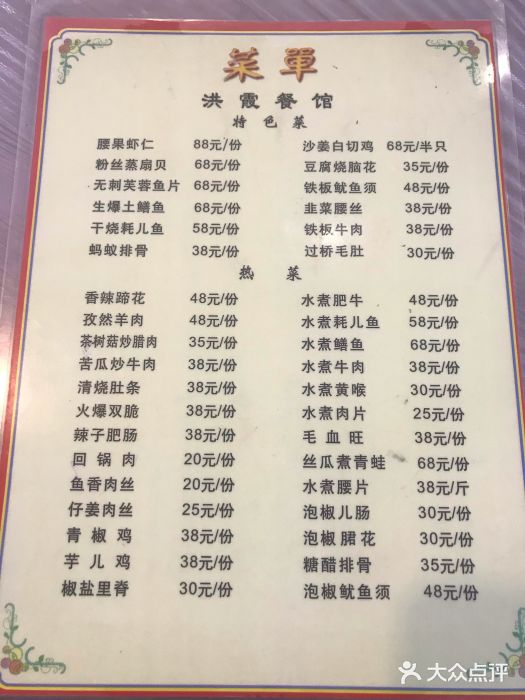 菜單
洪霞餐馆
特色菜
腰果虾仁 88元/份 沙姜白切鸡 68元/半只
粉丝蒸扇贝 68元/份 豆腐烧脑花 35元/份
无刺芙蓉鱼片 68元/份 铁板鱿鱼须 48元/份
生爆土鳝鱼 68元/份 韭菜腰丝 38元/份
干烧耗儿鱼 58元/份 铁板牛肉 38元/份
蚂蚁排骨 38元/份 过桥毛肚 30元/份
热菜
香辣蹄花 48元/份 水煮肥牛 48元/份
孜然羊肉 48元/份 水煮耗儿鱼 58元/份
茶树菇炒腊肉 35元/份 水煮鳝鱼 68元/份
苦瓜炒牛肉 38元/份 水煮牛肉 38元/份
清烧肚条 38元/份 水煮黄喉 30元/份
火爆双脆 38元/份 水煮肉片 25元/份
辣子肥肠 38元/份 毛血旺 38元/份
回锅肉 20元/份 丝瓜煮青蛙 68元/份
鱼香肉丝 20元/份 水煮腰片 38元/斤
仔姜肉丝 25元/份 泡椒儿肠 30元/份
青椒鸡 38元/份 泡椒䐃花 30元/份
芋儿鸡 38元/份 糖醋排骨 35元/份
椒盐里脊 30元/份 泡椒鱿鱼须 48元/份
大众点评